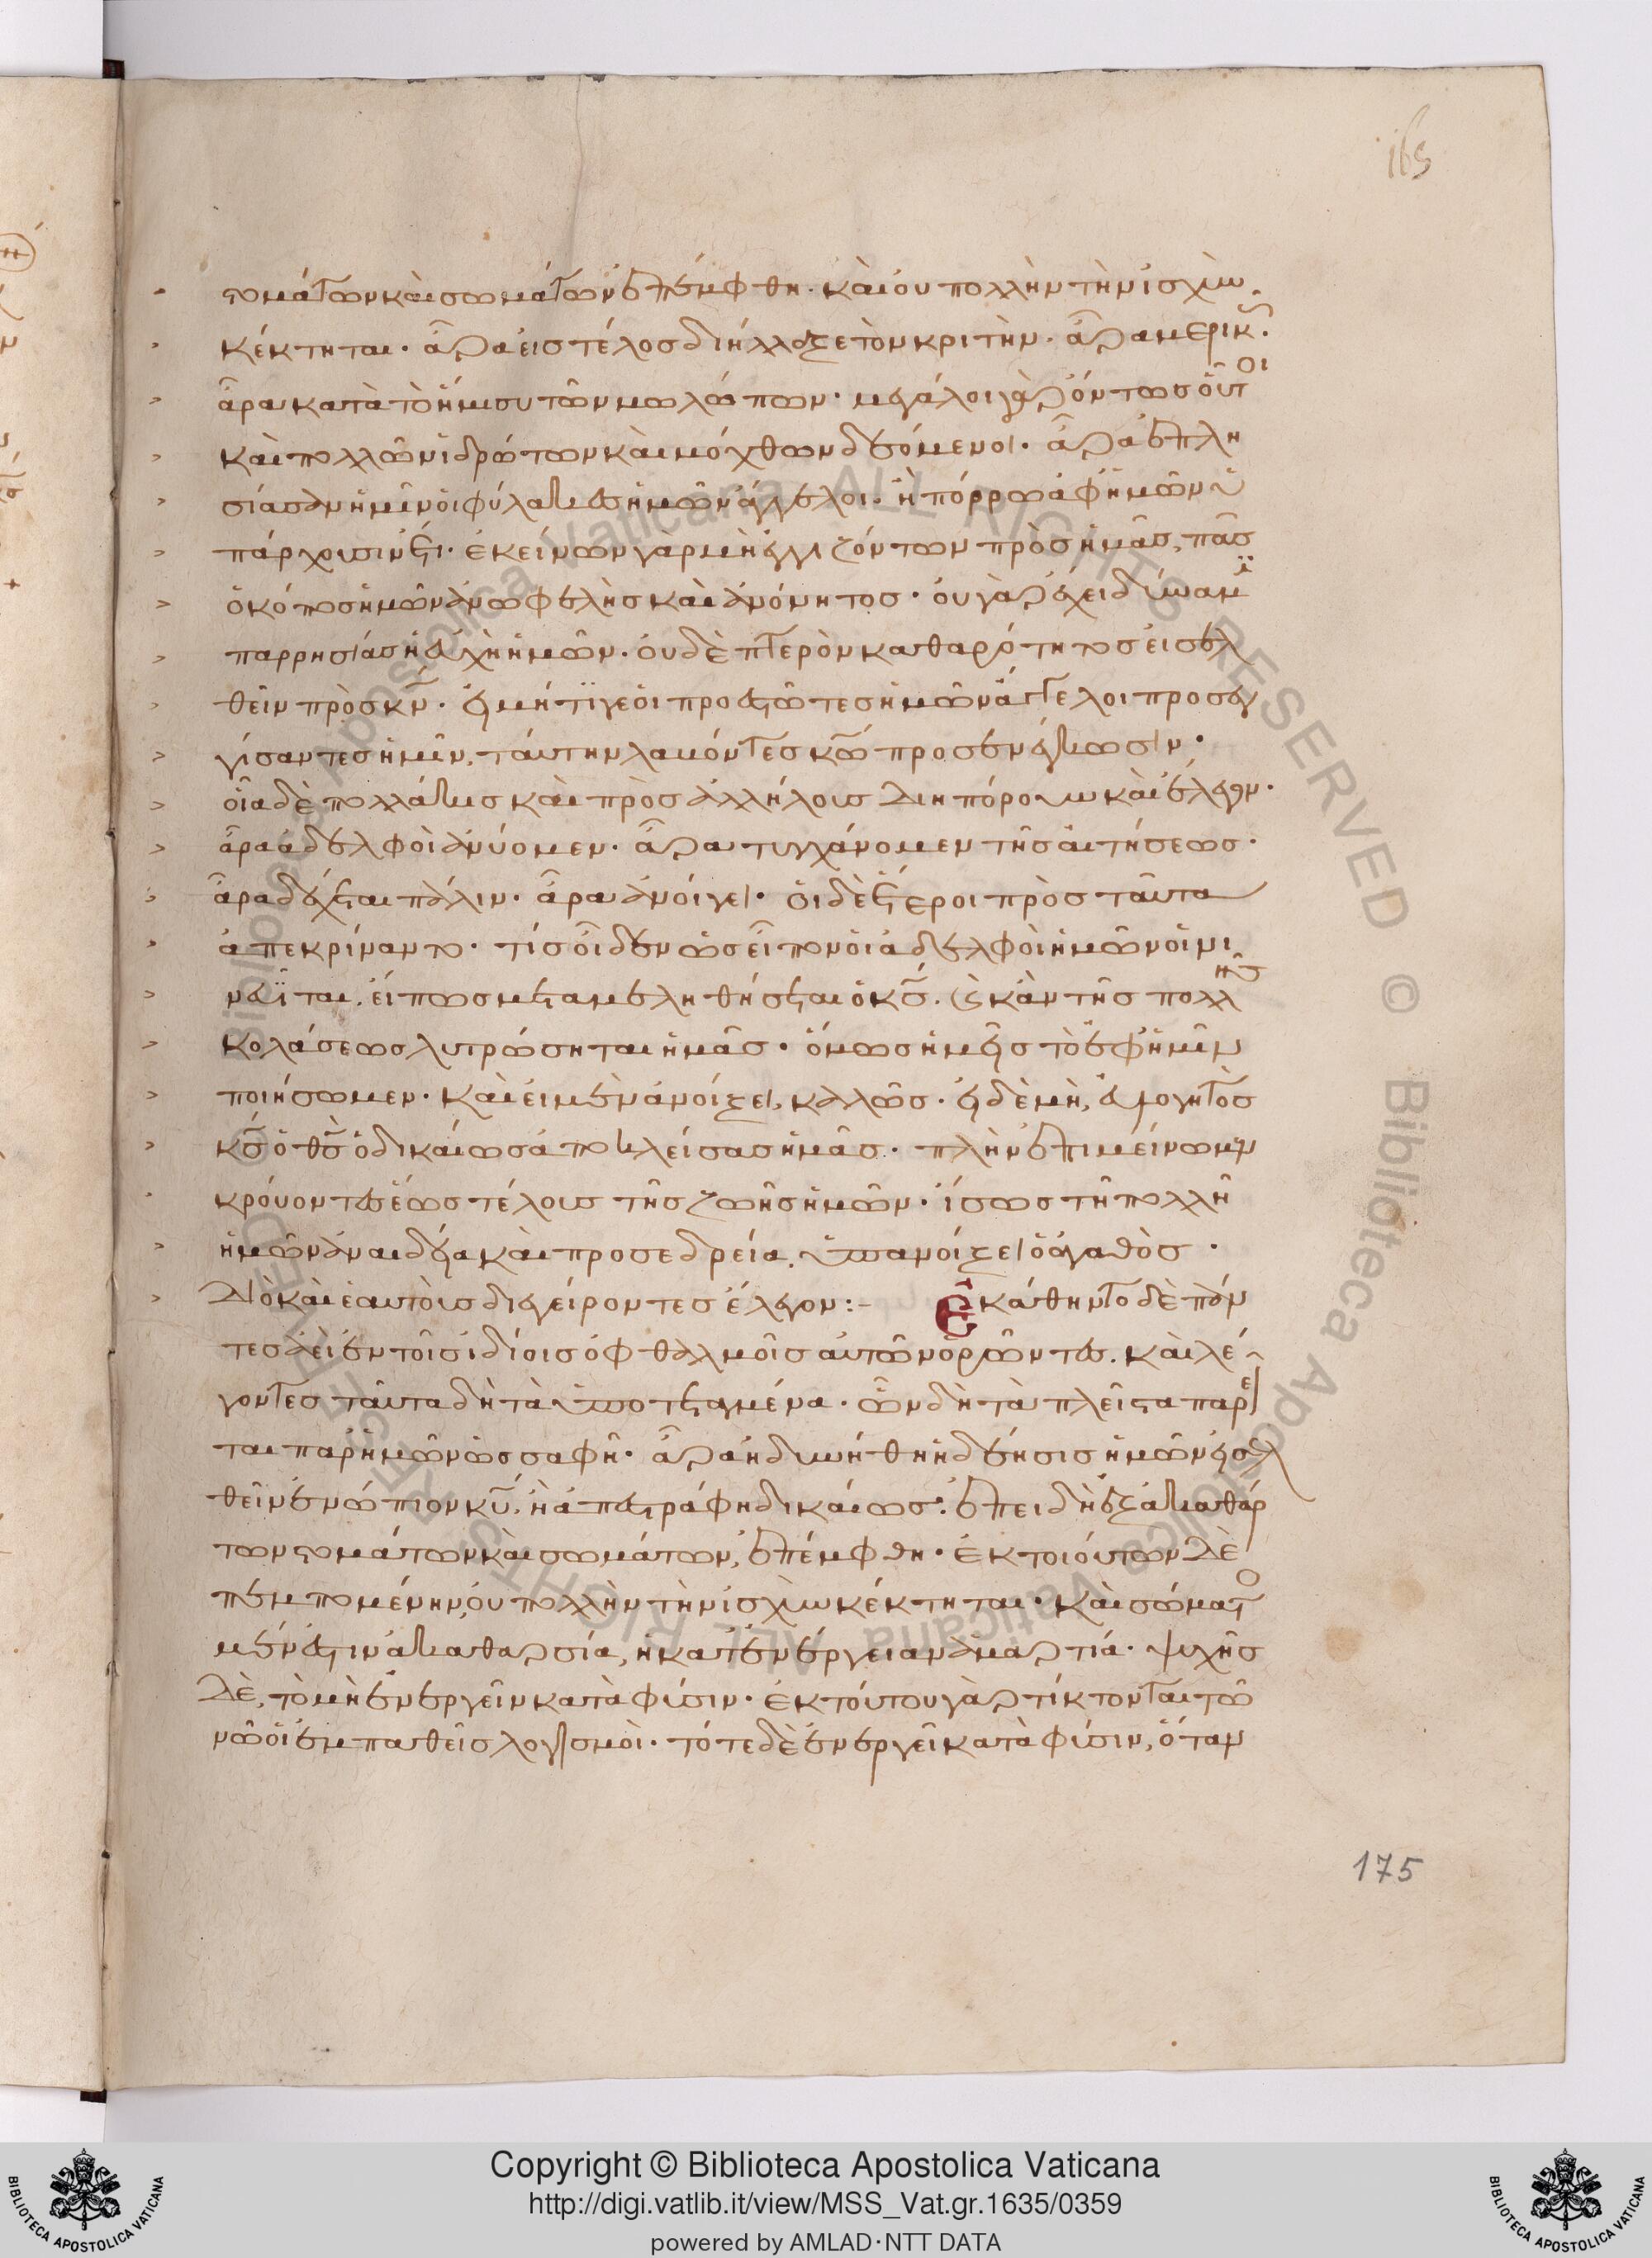 165
στομάτων καὶ σωμάτων ἐπέμφθη· καὶ οὐ πολλὴν τὴν ἰσχὺν
κέκτηται· ἆρα εἰς τέλος διήλλαξε τὸν κριτήν· ἆρα μερικ(ῶς)·
ἆρα κατὰ τὸ ἥμισυ τῶν μωλώπων· μεγάλοι γὰρ ὄντως οὗτοι
καὶ πολλῶν ἱδρώτων καὶ μόχθων δεόμενοι· ἆρα ἐπλη
σίασαν ἡμῖν οἱ φύλακες ἡμῶν ἄγγελοι· ἢ πόρρω ἀφ' ἡμῶν ὑ
πάρχουσιν ἔτι· ἐκείνων γὰρ μὴ ἐγγιζόντων πρὸς ἡμᾶς, πᾶς
ὁ κόπος ἡμῶν ἀνωφελὴς καὶ ἀνόνητος· οὐ γὰρ ἔχει δύναμιν
παρρησίας ἡ εὐχὴ ἡμῶν· οὐδὲ πτερὸν καθαρότητος εἰσελ
θεῖν πρὸς κν· εἰ μήτιγε οἱ προεστῶτες ἡμῶν ἄγγελοι προσεγ
γίσαντες ἡμῖν, ταύτην λαβόντες κω προσενέγκωσιν·
οἷα δὲ πολλάκις καὶ πρὸς ἀλλήλους διηπόρουν καὶ ἔλεγον·
ἆρα ἀδελφοὶ ἀνύομεν· ἆρα τυγχάνομεν τῆς αἰτήσεως·
ἆρα δέχεται πάλιν· ἆρα ἀνοίγει· οἱ δὲ ἕτεροι πρὸς ταῦτα
ἀπεκρίναντο· τίς οἶδεν ὡς εἶπον οἱ ἀδελφοὶ ἡμῶν οἱ νι
νευῖται, εἴπως μεταμεληθήσεται ὁ κς, καὶ κἂν τῆς πολλῆς
κολάσεως λυτρώσηται ἡμᾶς· ὅμως ἡμεῖς τὸ ἐφ' ἡμῖν
ποιήσωμεν· καὶ εἰ μὲν ἀνοίξει, καλῶς· εἰ δὲ μὴ, εὐλογητὸς
κς ὁ θς ὁ δικαίως ἀποκλείσας ἡμᾶς· πλὴν ἐπιμείνωμεν
κρούοντες ἕως τέλους τῆς ζωῆς ἡμῶν· ἴσως τῇ πολλῇ
ἡμῶν ἀναιδείᾳ καὶ προσεδρείᾳ, ὑπανοίξει ὁ ἀγαθὸς·
Διὸ καὶ ἑαυτοὺς διεγείροντες ἔλεγον:– Ἐκάθηντο δὲ πάν
τες ἀεὶ ἐν τοῖς ἰδίοις ὀφθαλμοῖς αὐτῶν ὁρῶντες. καὶ λέ
γοντες ταῦτα δὴ τὰ ὑποτεταγμένα· ὧν δὴ τὰ πλεῖστα παρεῖ
ται παρ' ἡμῶν ὡς σαφῆ· ἆρα ἠδυνήθη ἡ δέησις ἡμῶν εἰσελ
θεῖν ἐνώπιον κυ, ἢ ἀπεστράφη δικαίως· ἐπειδὴ ἐξ ἀκαθάρ
των στομάτων καὶ σωμάτων, ἐπέμφθη· ἐκ τοιούτων δὲ
πεμπομένην, οὐ πολλὴν τὴν ἰσχὺν κέκτηται· καὶ σώματο(ς)
μέν ἐστιν ἀκαθαρσία, ἡ κατ' ἐνέργειαν ἁμαρτία· ψυχῆς
δὲ, τὸ μὴ ἐνεργεῖν κατὰ φύσιν· ἐκ τούτου γὰρ τίκτονται τῷ
νῷ οἱ ἐμπαθεῖς λογισμοὶ· τότε δὲ ἐνεργεῖ κατὰ φύσιν, ὅταν
175
Biblioteca Apostolica Vaticana ALL RIGHTS RESERVED © Biblioteca Apostolica Vaticana ALL RIGHTS RESERVED ©
Copyright © Biblioteca Apostolica Vaticana
http://digi.vatlib.it/view/MSS_Vat.gr.1635/0359
powered by AMLAD·NTT DATA
BIBLIOTECA APOSTOLICA VATICANA
BIBLIOTECA APOSTOLICA VATICANA